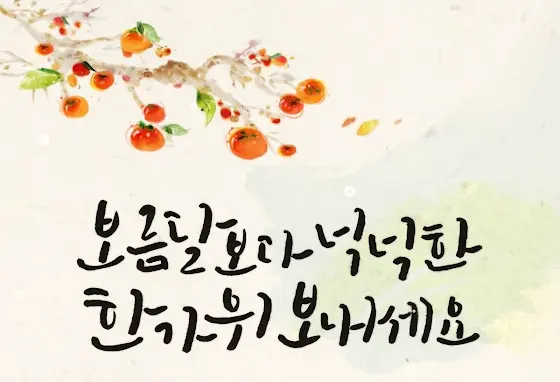 보름달보다 넉넉한
한가위 보내세요